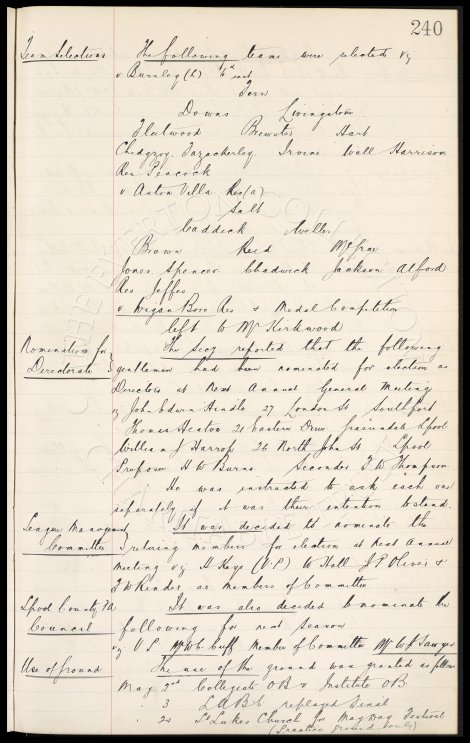 240
Team Selections The following teams were selected vz
v Burnley (L) 6th inst
Fern
Downs Livingstone
Fleetwood Brewster Hart
Chedgzoy. Fazackerley. Irvine Wall Harrison
Res Peacock
v Aston Villa Res (a)
Salt
Caddick Weller
Brown Reid McGrae
Jones Spencer Chadwick Jackson Alford
Res Jeffs
v Wigan Boro Res & Medal Competition
left to Mr Kirkwood
Nominations for The Secy reported that the following
Directorate gentlemen had been nominated for election as
Directors at Next Annual General Meeting
vz John Edwin 27 London St Southport
Thomas Heaton 21 Eastern Drive Grassendale Lpool
William J Harrop 26 North John St Lpool
Proposer H W Burns Seconder F W Thompson
He was instructed to ask each one
separately if it was their intention to stand.
League Management It was decided to nominate the
Committee retiring members for election at next Annual
Meeting vz H Keys (V.P.) Hall J P Oliver &
F W Rinder as members of Committee
Lpool County FA It was also decided to nominate the
Council following for next season
vz V.P. Mr W C Cuff Member of Committee Mr W J Sawyer
Use of Ground The use of the ground was granted as follows
May 2nd Collegiate OB v Institute OB
3 replayed Final
24 St Lukes Church for May Day Festival
(Practice ground only)
THE EVERTON